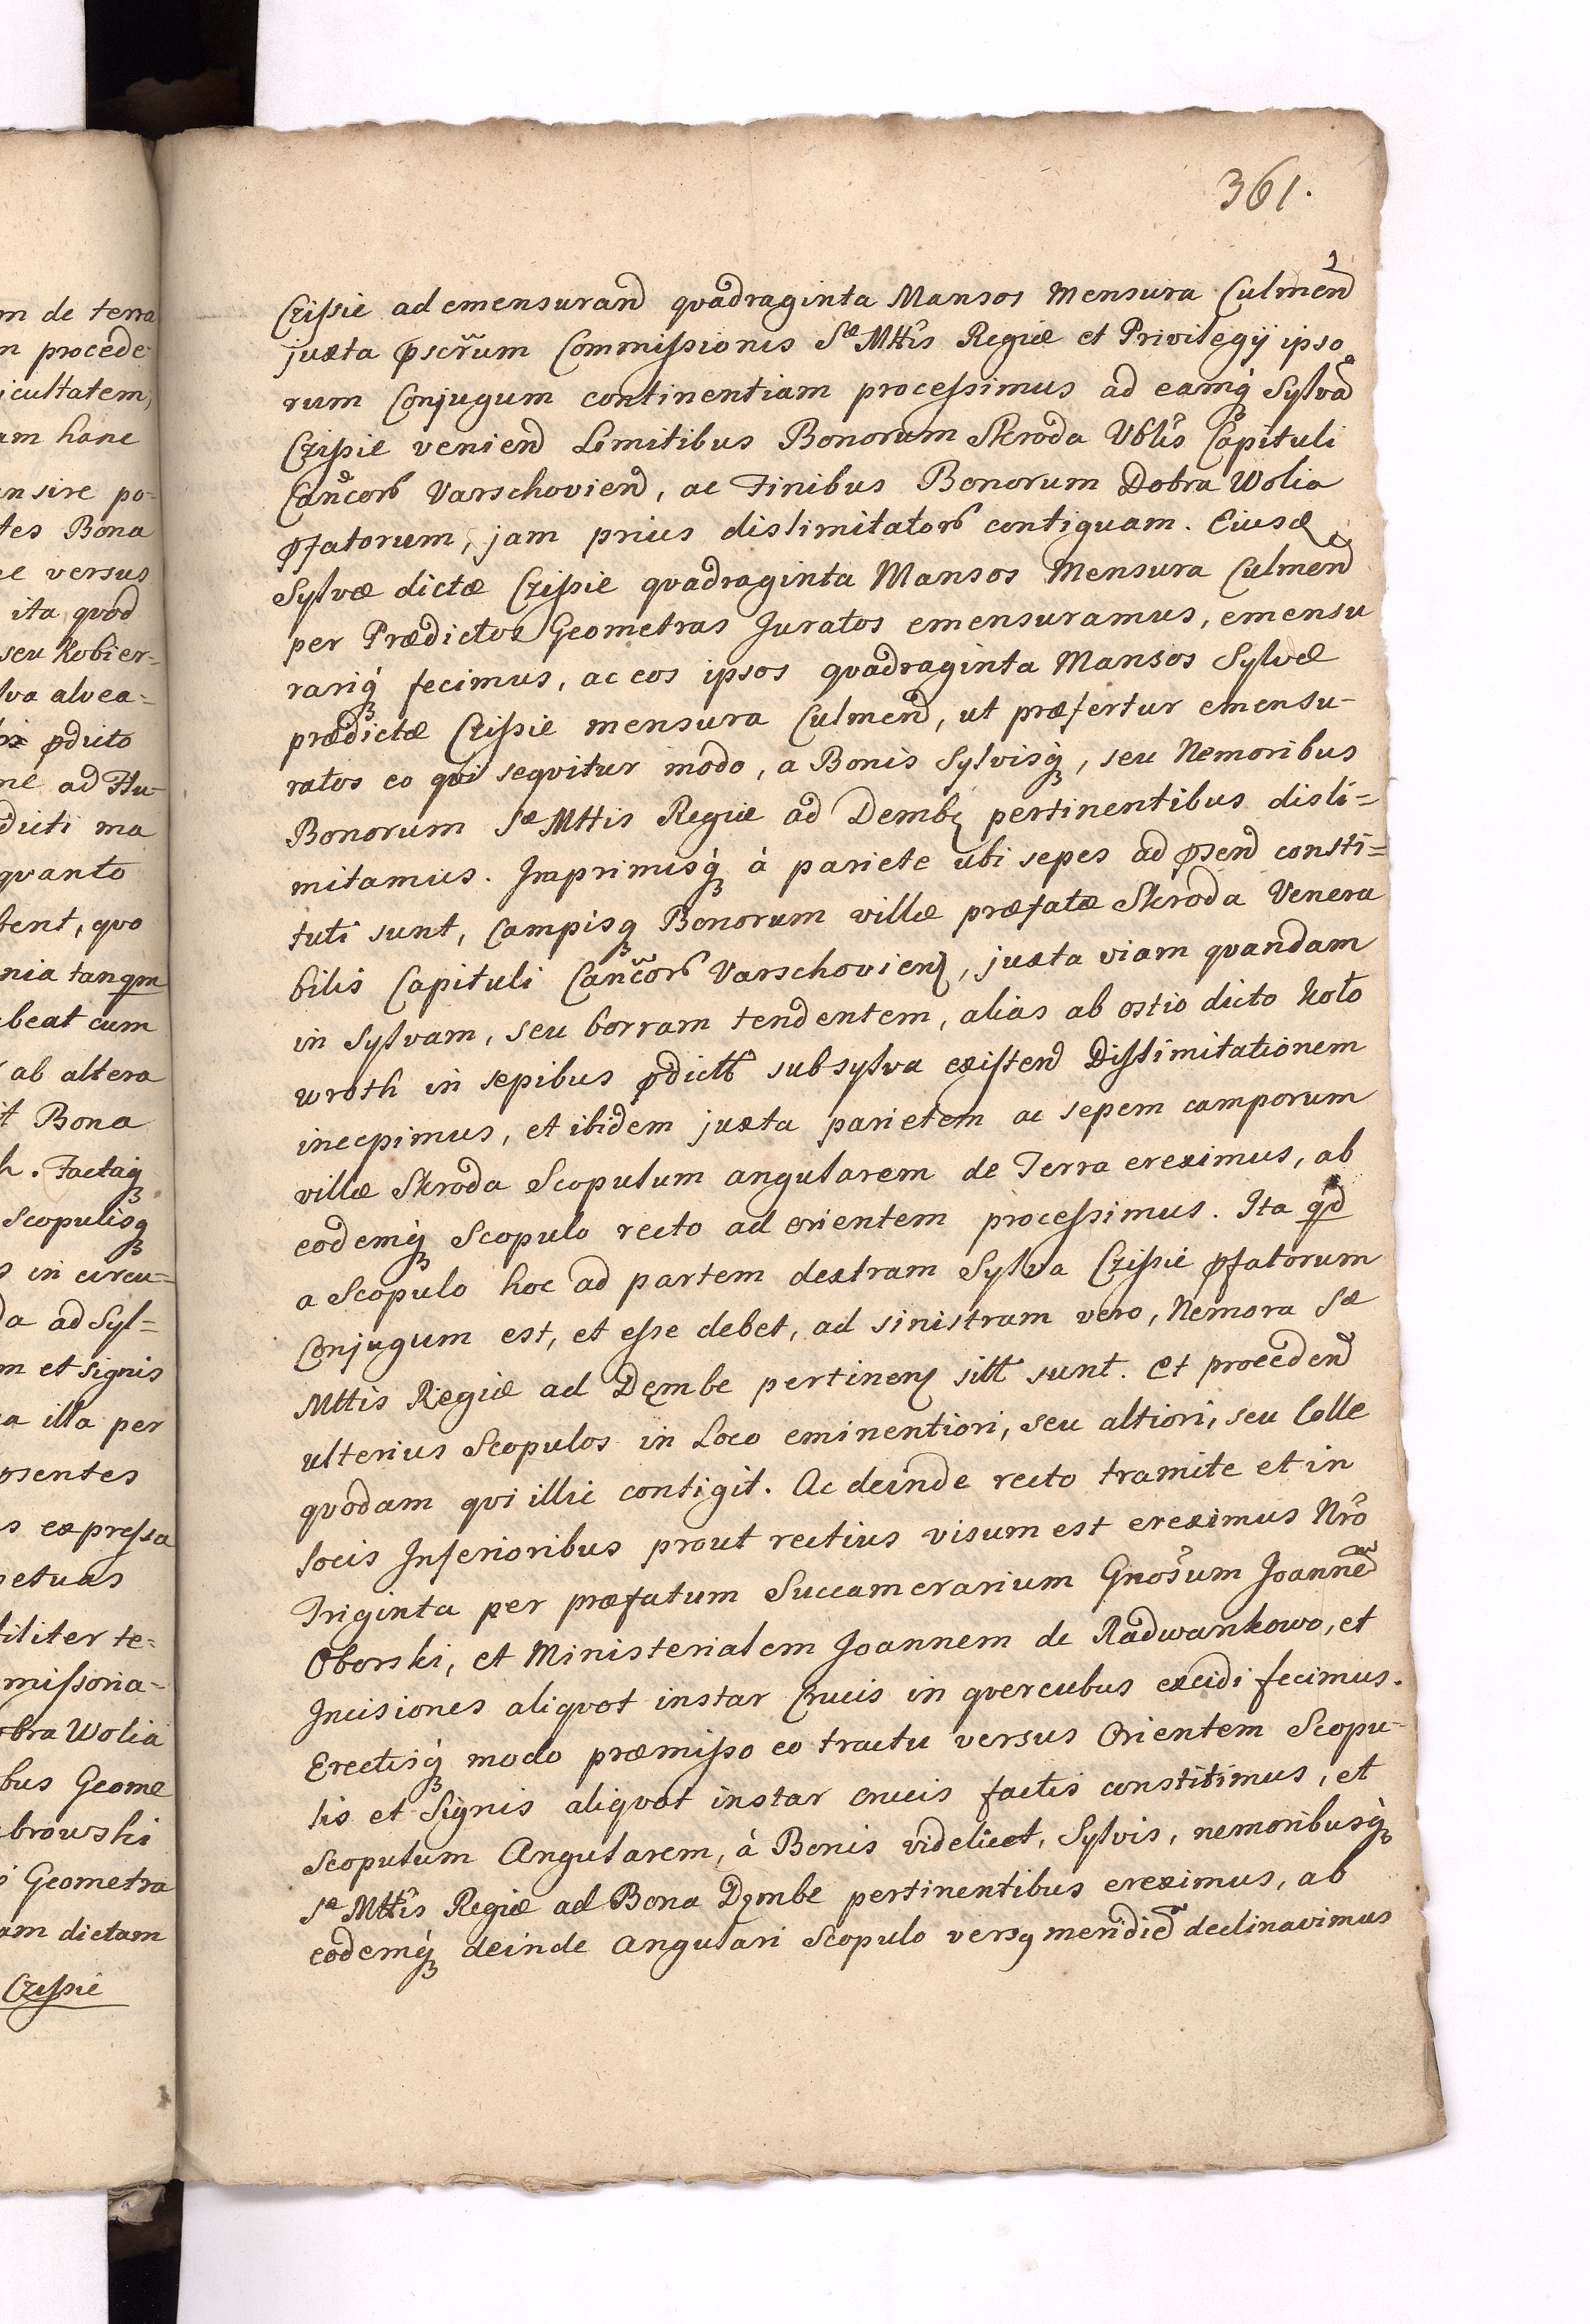 361.
m de terra
n procede
icultatem,
am hanc
ensire po-
tes Bona
ie versus
ita qvod
seu Kobier-
lva alvea-
pdicto
me ad Flu-
dicti ma
qvanto
bent, qvo
nia tanqm
beat cum
ab altera
it Bona
h. Factaq
Scopulisq
s in circu=
da ad Syl=
m et signis
a illa per
psentes
s expressa
petuas
biliter te=
missoria-
obra Wolia
bus Geome
browski
i Geometra
am dictam
Czissie
Czissie ad emensurand qvadraginta Mansos Mensura Culmen
juxta pscrum Commissionis Sæ Mttis Regiæ et Privilegÿ ipso
rum Conjugum continentiam processimus ad eamq Sylva
Czissie veniend Limitibus Bonorum Skroda Vblis Capituli
Cancor Varschovien, ac Finibus Bonorum Dobra Wolia
pfatorum, jam prius dislimitator contiguam. Eiusd
Sylvæ dictæ Czissie qvadraginta Mansos Mensura Culmen
per Prædictos Geometras Juratos emensuramus, emensu
rariq fecimus, ac eos ipsos qvadraginta Mansos Sylvæ
prædictæ Czissie mensura Culmen, ut præfertur emensu-
ratos eo qvi seqvitur modo, a Bonis Sylvisq, seu Nemoribus
Bonorum Sæ Mttis Regiæ ad Dembę pertinentibus disli=
mitamus. Imprimisq à pariete ubi sepes ad psen consti=
tuti sunt, Campisq Bonorum villæ præfatæ Skroda Venera
bilis Capituli Cancor Varschovien, juxta viam qvandam
in sylvam, seu borram tendentem, alias ab ostio dicto Koło
wroth in sepibus pdict sub sylva existen Dislimitationem
incepimus, et ibidem juxta parietem ac sepem camporum
villæ Skroda Scopulum angularem de Terra ereximus, ab
eodemq Scopulo recto ad orientem processimus. Ita qd
a Scopulo hoc ad partem dextram Sylva Czissie pfatorum
Conjugum est, et esse debet, ad sinistram vero, Nemora Sæ
Mttis Regiæ ad Dęmbe pertinen sitt sunt. Et proceden
ulterius Scopulos in Loco eminentiori, seu altiori, seu Colle
qvodam qvi illic contigit. Ac deinde recto tramite et in
locis Inferioribus prout rectius visum est ereximus Nro
Triginta per præfatum Succamerarium Gnosum Joanne
Oborski, et Ministerialem Joannem de Radwankowo, et
Incisiones aliqvot instar Crucis in qvercubus excidi fecimus.
Erectisq modo præmisso eo tractu versus Orientem Scopu-
lis et Signis aliqvot instar crucis factis constitimus, et
Scopulum Angularem, à Bonis videlicet, Sylvis, nemoribusq
Sæ Mttis Regiæ ad Bona Dęmbe pertinentibus ereximus, ab
eodemq deinde Angulari Scopulo versq meridie declinavimus